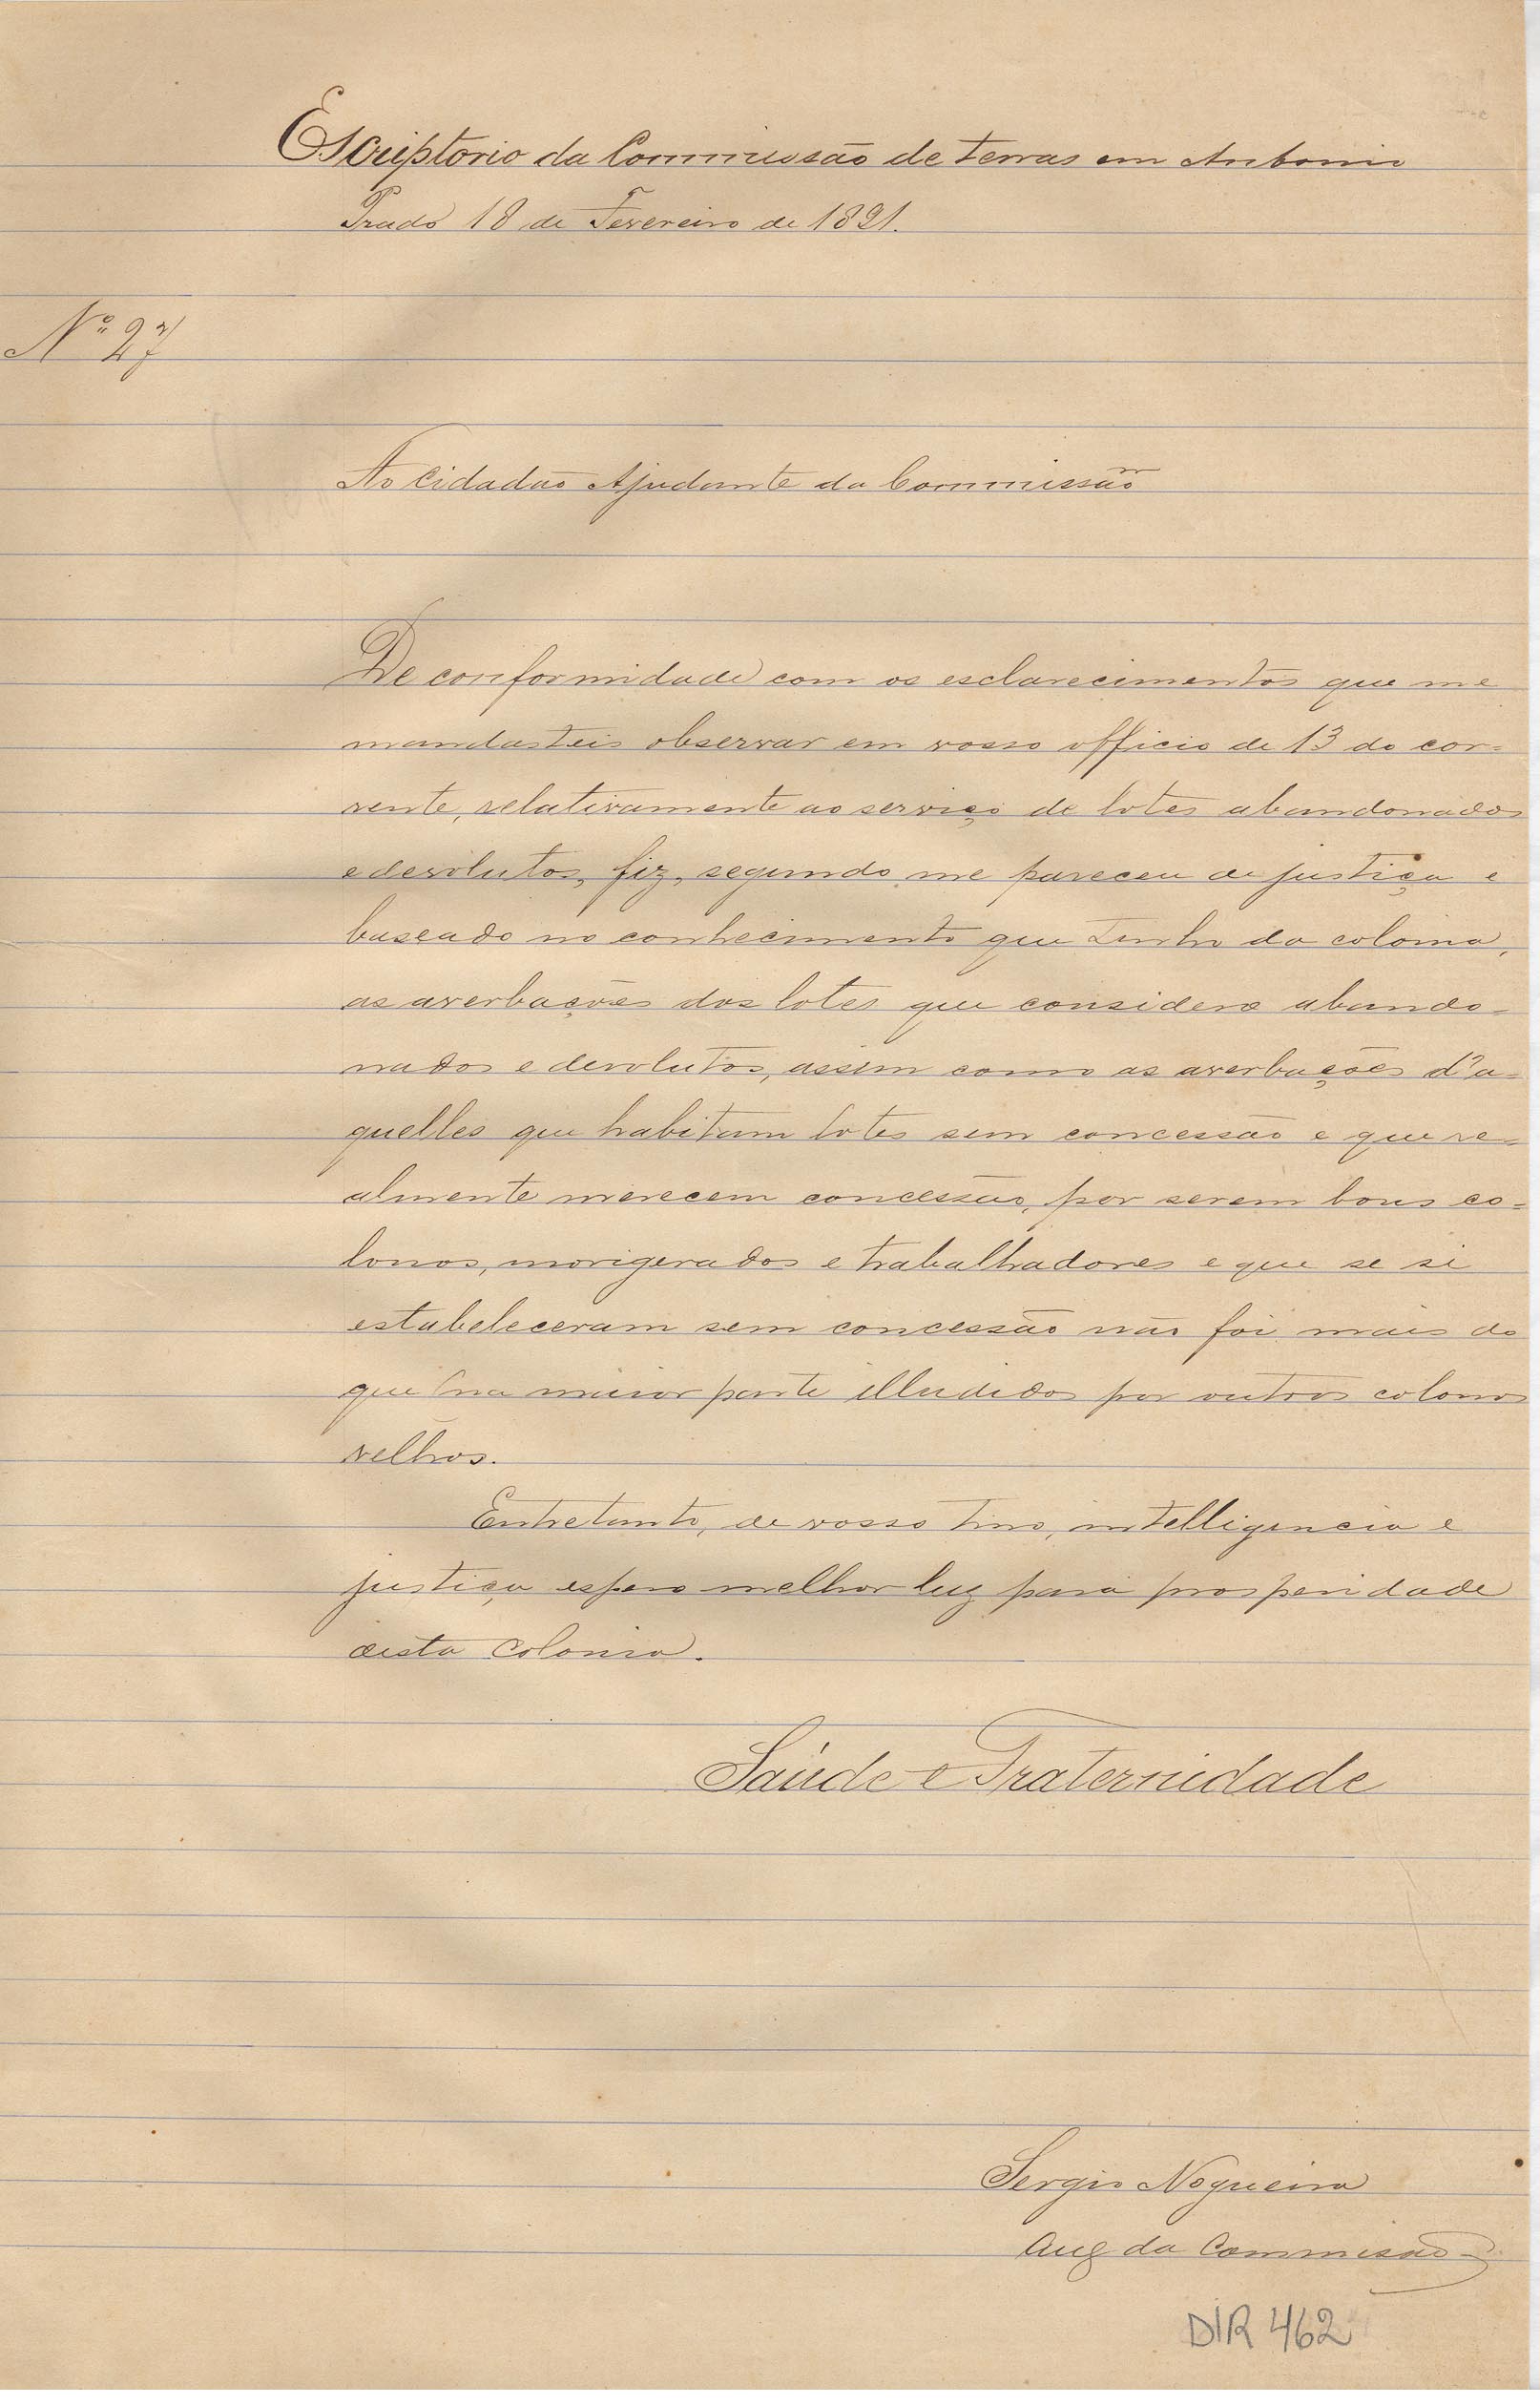 Escriptorio da Commissão de terras em Antonio
Prado 18 de Fevereiro de 1891.
Nº 27
Ao Cidadão Ajudante da Commissão
De conformidade com os esclarecimentos que me
mandasteis observar em vosso officio de 13 do cor=
rente, relativamente ao serviço de lotes abandonados
e devolutos, fiz, segundo me pareceu de justiça e
baseado no conhecimento que tenho da colonia,
as averbações dos lotes que considero abando=
nados e devolutos, assim como as averbações d'a=
quelles que habitam lotes sem concessão e que re=
almente merecem concessão, por serem bons co=
lonos, morigerados e trabalhadores e que se si
estabeleceram sem concessão não foi mais do
que na maior parte illudidos por outros colonos
velhos.
Entretanto, de vosso tino, intelligencia e
justiça, espero melhor luz para prosperidade
desta Colonia.
Saúde e Fraternidade
Sergio Nogueira
Aux da Commissão
DIR 462